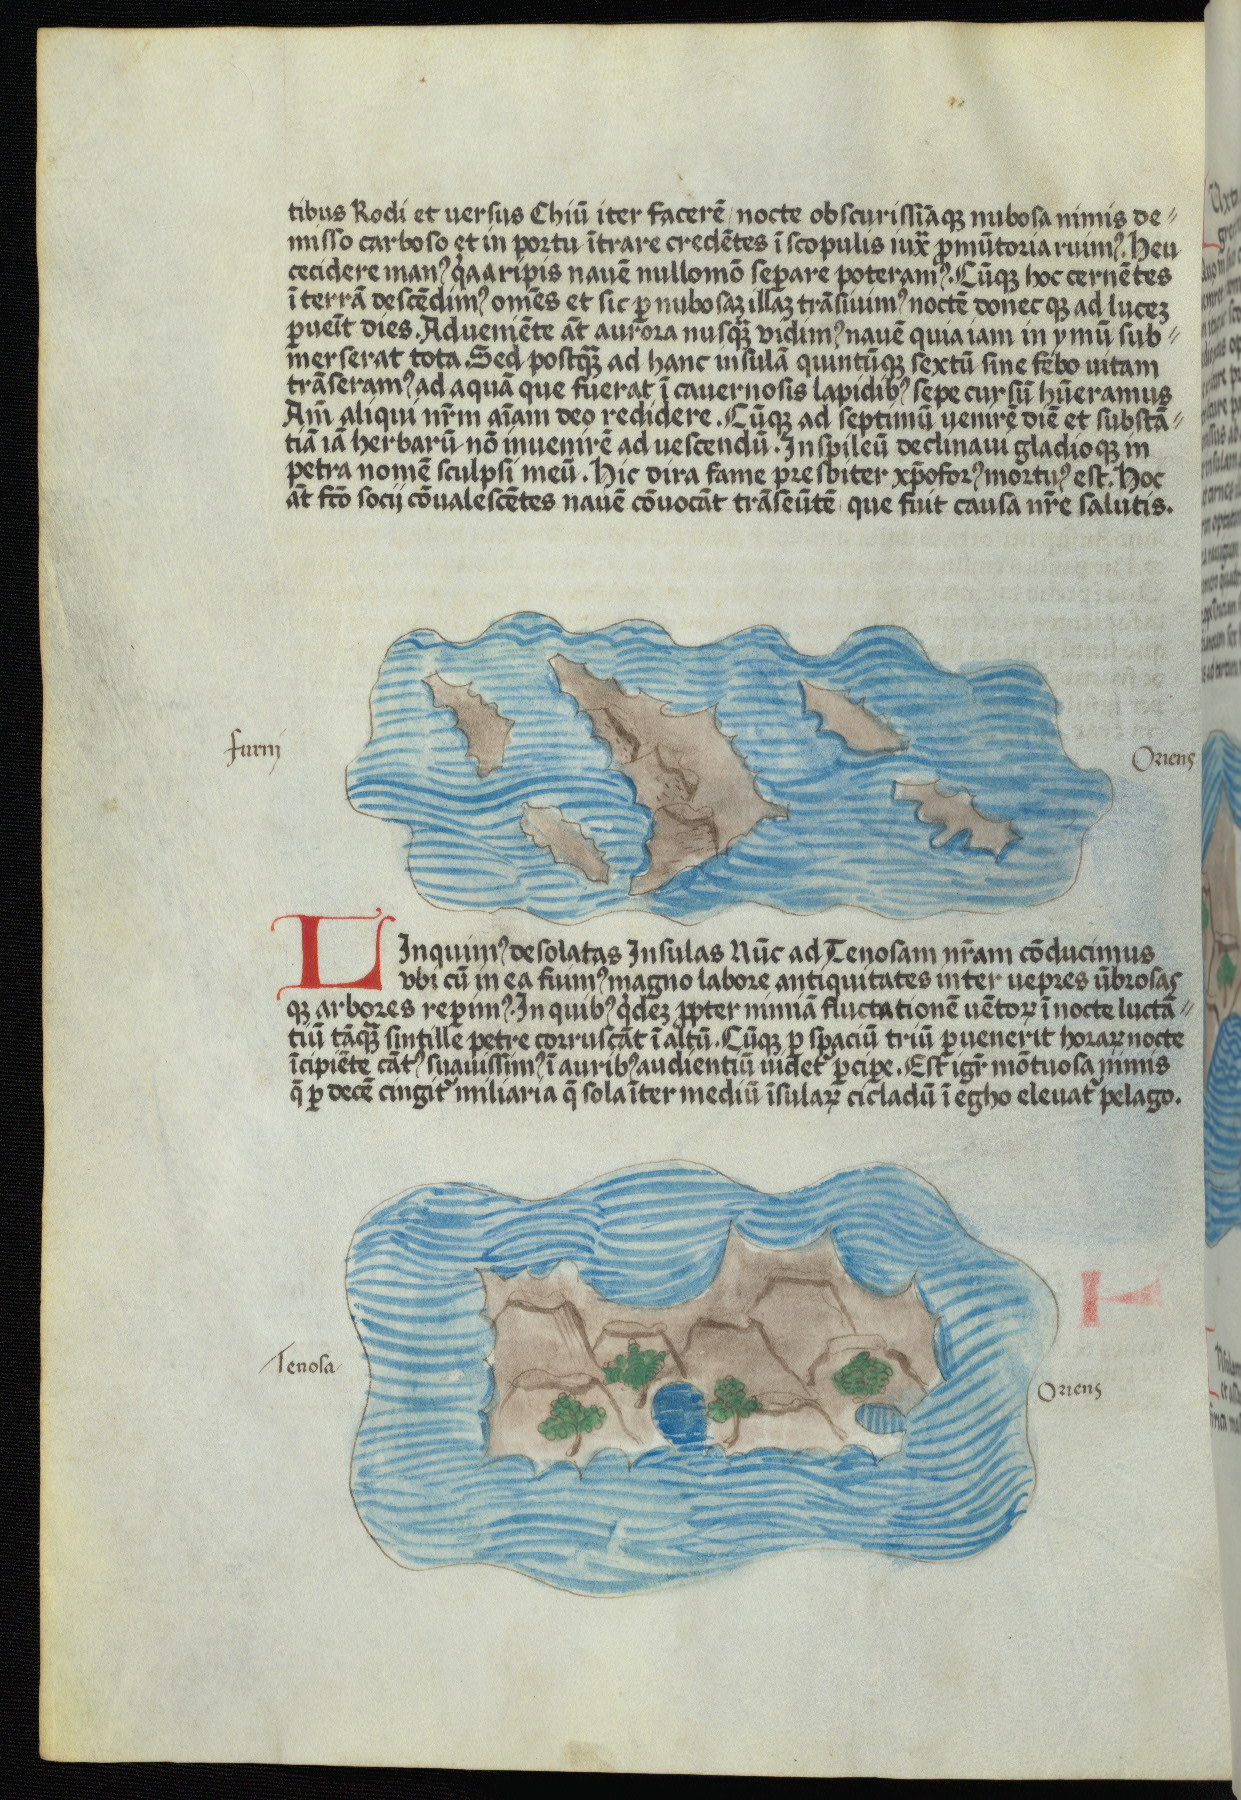 tibus Rodi et uersus Chiū iter facerē nocte obscurissīāqꝫ nubosa nimis de⸗
misso carboso et in portu ītrare credētes ī scopulis iux̄ ꝓmūtoria ruimꝰ. Heu
cecidere manꝰ q̄a a ripis nauē nullomō seꝑare poteramꝰ. Cūqꝫ hoc cernētes
ī terrā descēdimꝰ om̄es et sic ꝑ nubosaꝫ illāꝫ trāsiuimꝰ noctē donec qꝫ ad luceꝫ
ꝑueīt dies. Adueniēte āt aurora nusqꝫ̄ vidimꝰ nauē quia iam in ymū sub⸗
merserat tota. Sed postqꝫ̄ ad hanc insulā quintūqꝫ sextū sine febo uitam
trāseramꝰ ad aquā que fuerat ī cauernosis lapidibꝰ sepe cursū hūeramus
Aīm̄ aliqui nr̄m aīam deo redidere. Cūqꝫ ad septimū uenirē diē et substā⸗
tiā iā herbarū nō inuenirē ad uescendū. In spileū declinaui gladioqꝫ in
petra nomē sculpsi meū. Hic dira fame presbiter xp̄oforꝰ mortuꝰ est. Hoc
āt fc̄o socij cōualescētes nauē cōuocāt trāseūtē que fuit causa nr̄e salutis.
furnj
Oriens
LInquimꝰ desolatas Insulas Nūc ad Tenosam nr̄am cōducimus
vbi cū in ea fuimꝰ magno labore antiquitates inter uepres ūbrosas
qꝫ arbores reperimꝰ. In quibꝰ q̄deꝫ ꝓpter nimiā fluctationē uētoꝝ ī nocte luctā⸗
tiū tāqꝫ̄ sintille petre corruscāt ī altū. Cūqꝫ ꝑ spaciū triū ꝑuenerit horaꝝ nocte
īcipiēte cātꝰ suauissimꝰ ī auribꝰ audientiū uidet̄ ꝑciꝑe. Est igr̄ mōtuosa nimis
q̄ ꝑ decē cingit̄ miliaria q̄ sola īter mediū īsulaꝝ cicladū ī egho eleuat̄ pelago.
Tenosa
Oriens